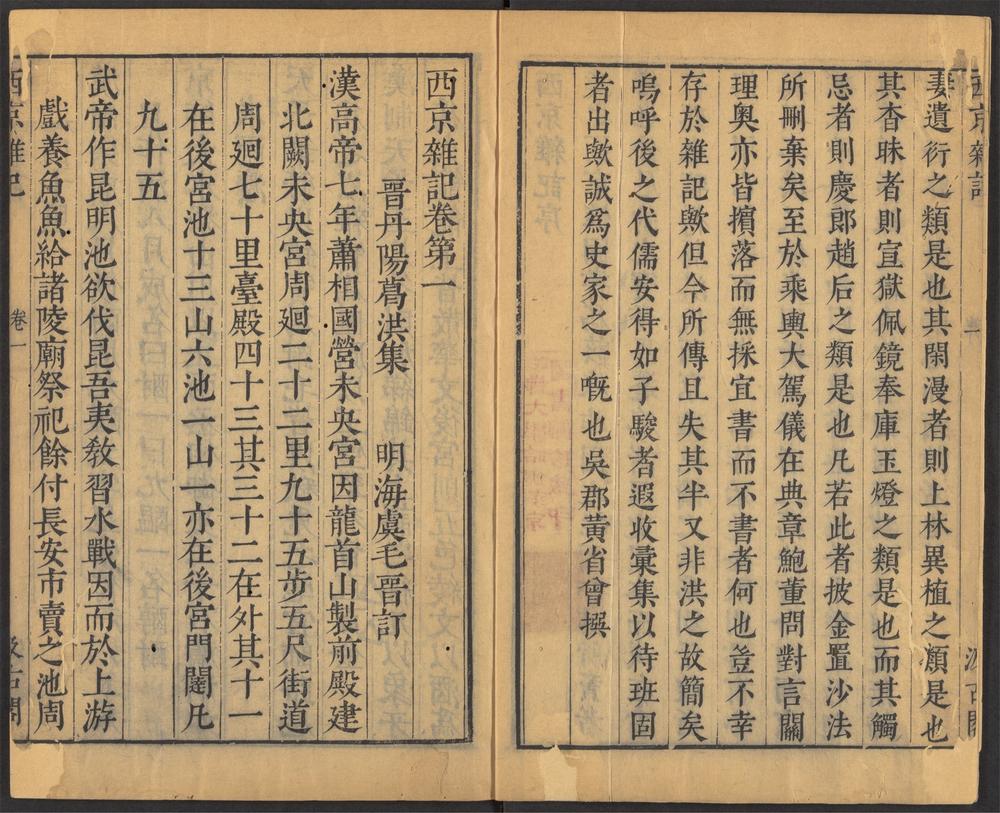 西京雜記
妻遺衍之類是也其閑漫者則上林異植之類是也
其杳昧者則宣獄佩鏡奉庫玉燈之類是也而其觸
忌者則慶郎趙后之類是也凡若此者披金置沙法
所刪棄矣至於乘輿大駕儀在典章鮑董問對言關
理奧亦皆擯落而無採宜書而不書者何也豈不幸
存於雜記歟但今所傳且失其半又非洪之故簡矣
嗚呼後之代儒安得如子駿者遐收彙集以待班固
者出歟誠爲史家之一嘅也吳郡黃省曾撰
西京雜記卷第一
晋丹陽葛洪集 明海虞毛晋訂
漢高帝七年蕭相國營未央宮因龍首山製前殿建
北闕未央宮周廻二十二里九十五步五尺街道
周廻七十里臺殿四十三其三十二在外其十一
在後宮池十三山六池一山一亦在後宮門闥凡
九十五
武帝作昆明池欲伐昆吾夷敎習水戰因而於上游
戲養魚魚給諸陵廟祭祀餘付長安市賣之池周
西京雜記 卷一 汲古閣